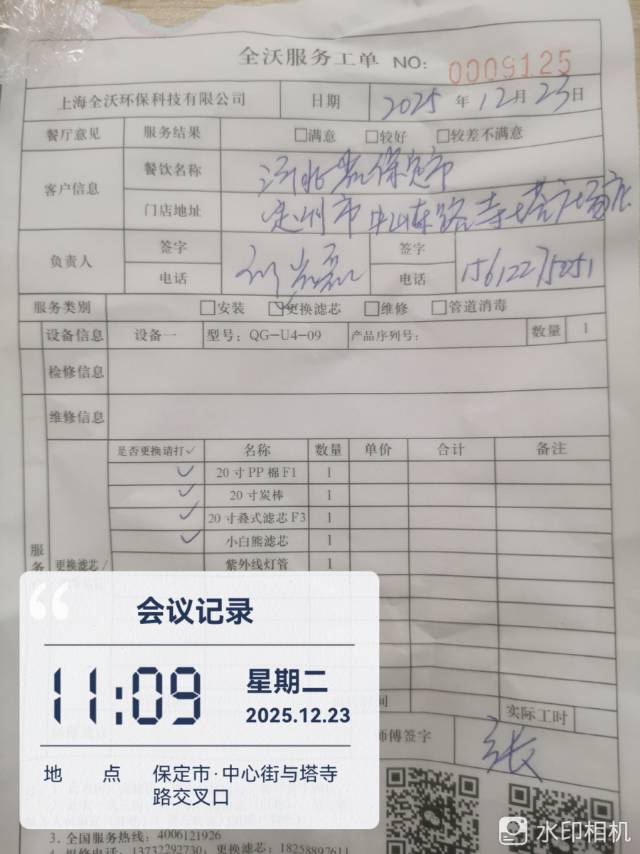 全沃服务工单 NO: 0009125
上海全沃环保科技有限公司 日期 2025 年 12 月 23 日
餐厅意见 服务结果 □满意 □较好 □较差不满意
客户信息 餐饮名称 河北省保定市
门店地址 定州市中山东路寺塔广场店
负责人 签字 签字
电话 电话 15612275051
服务类别 □安装 ☑更换滤芯 □维修 □管道消毒
设备信息 设备一 型号: QG-U4-09 产品序列号: 数量 1
检修信息
维修信息
是否更换请打✓ 名称 数量 单价 合计 备注
✓ 20寸PP棉F1 1
✓ 20寸炭棒 1
✓ 20寸叠式滤芯F3 1
✓ 小白熊滤芯 1
紫外线灯管 1
服务
更换滤芯/
时间 实际工时
师傅签字 张
“
会议记录
11:09 星期二
2025.12.23
地 点 保定市·中心街与塔寺
路交叉口
3. 全国服务热线: 4006121926
4. 维修电话: 13732292730; 更换滤芯: 18258897611
水印相机